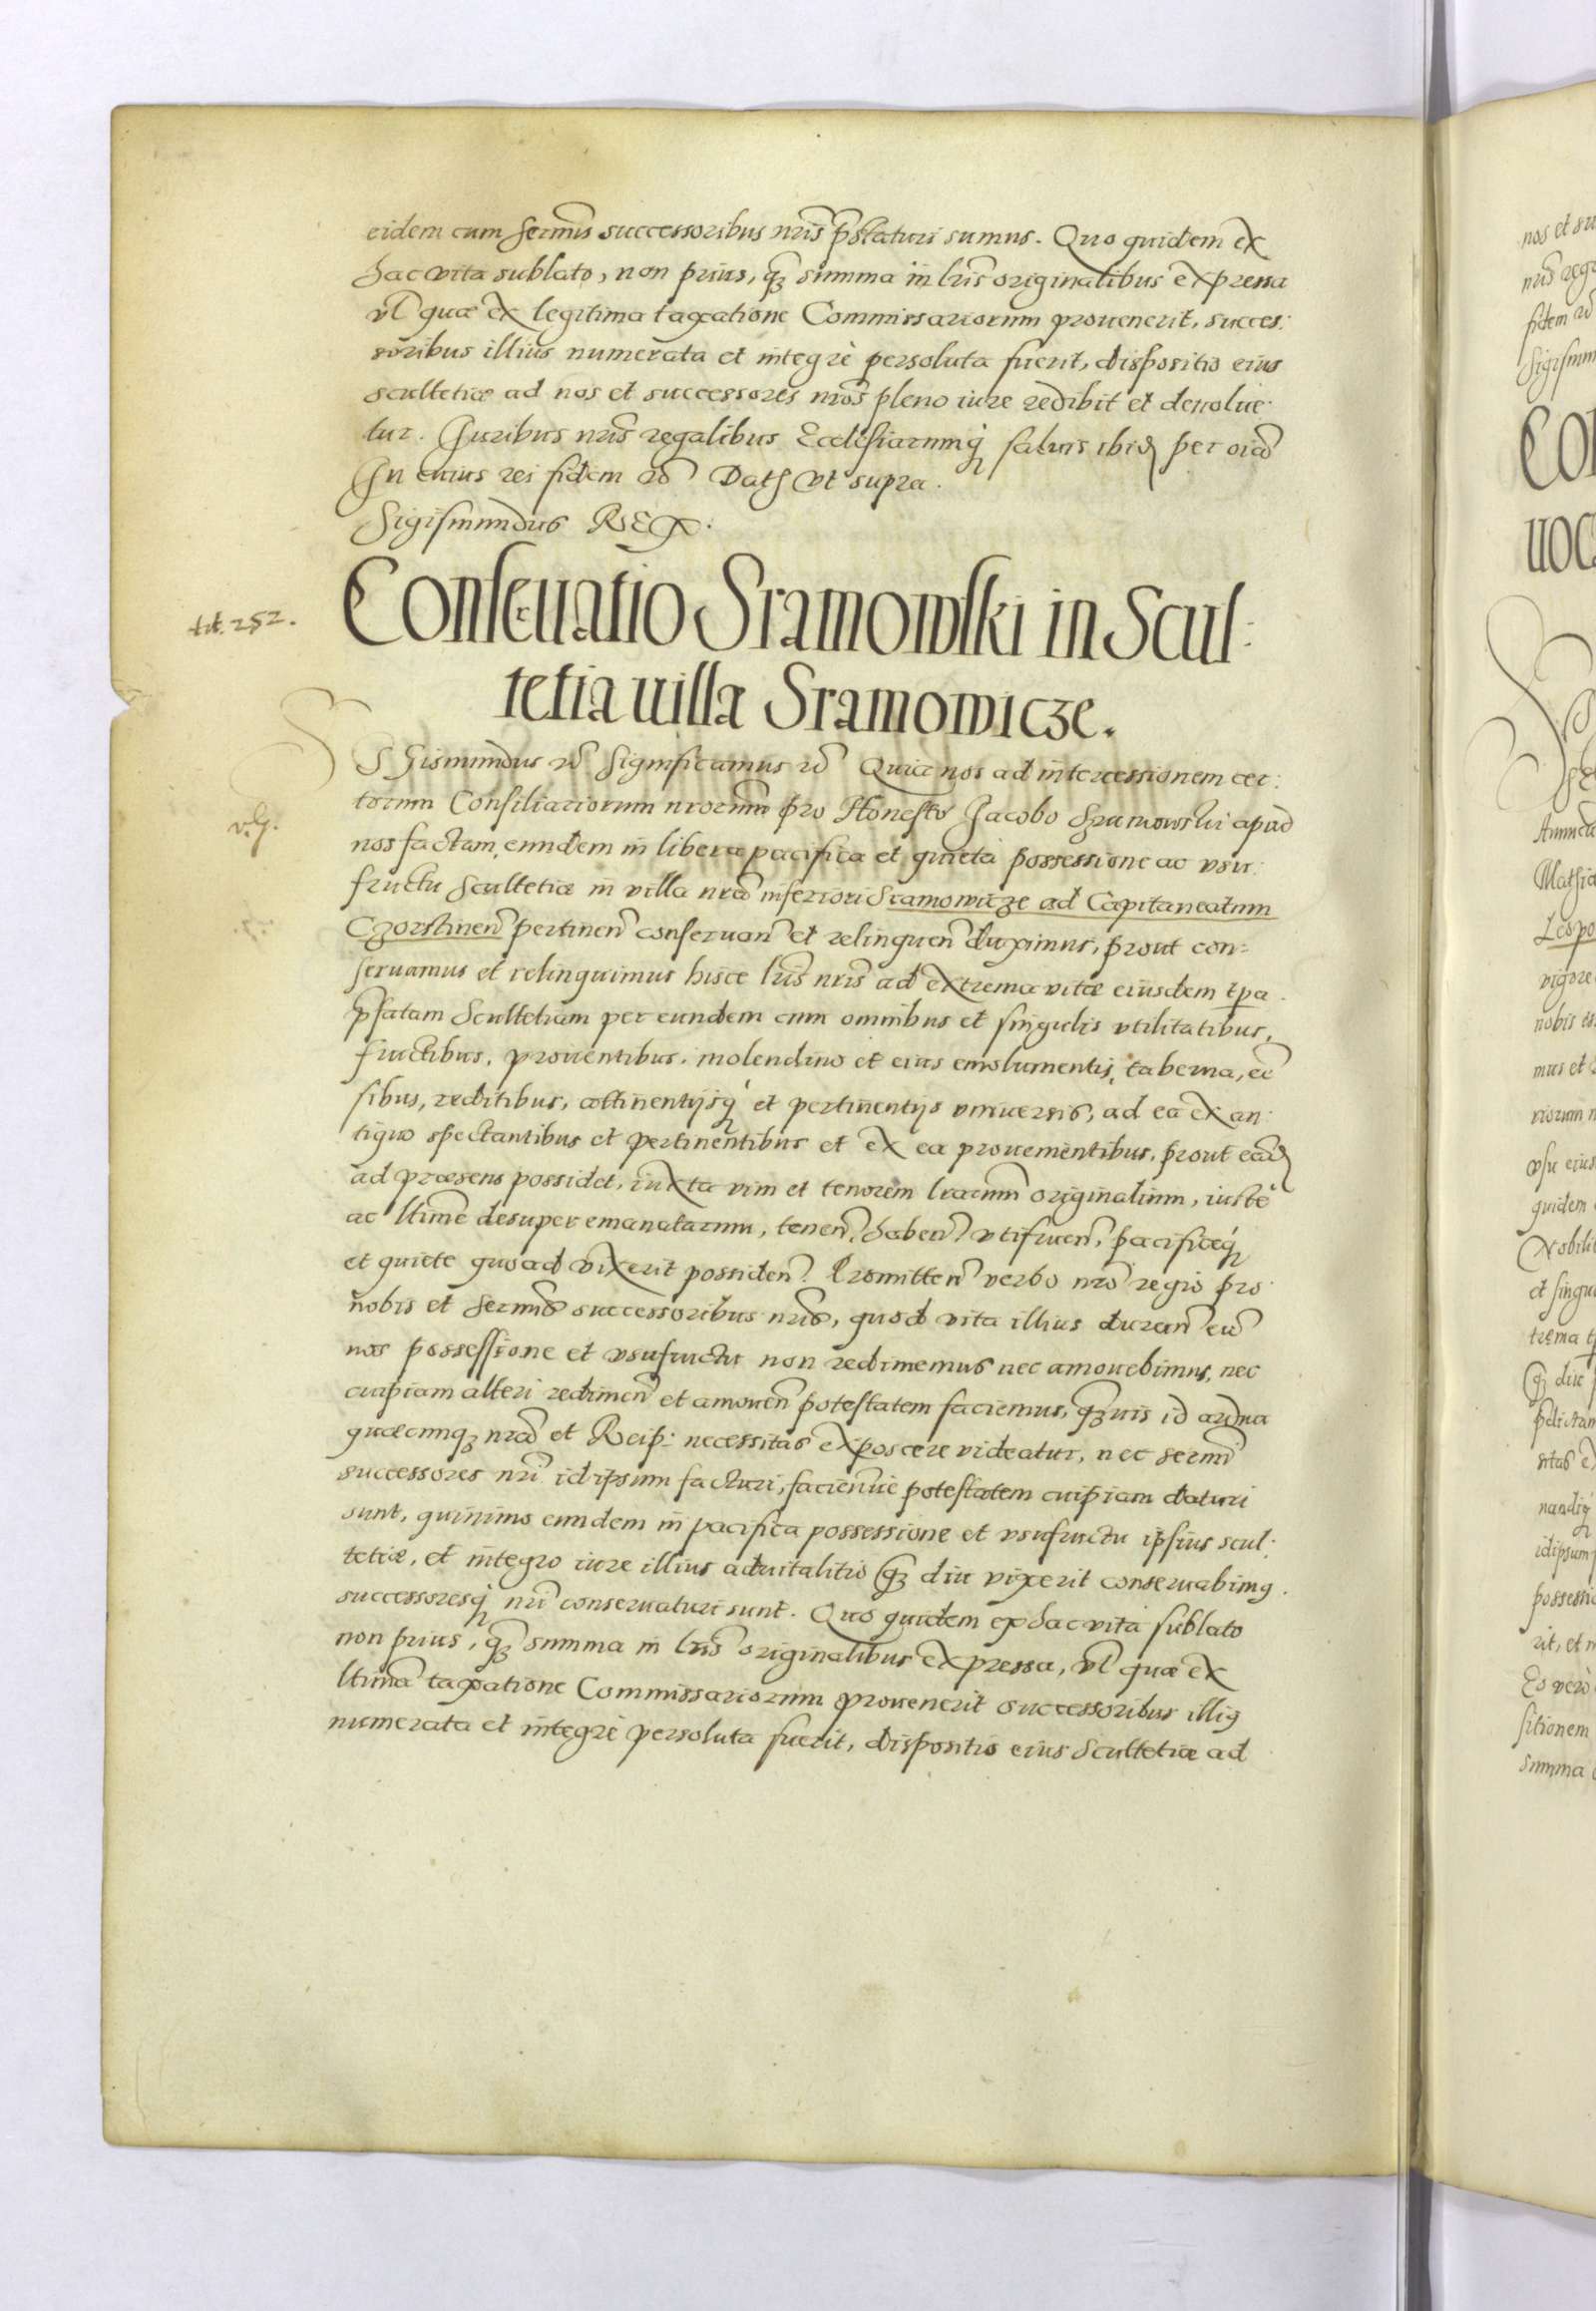 eidem cum sermis successoribus nris pstaturi sumus. Quo quidem ex
hac vita sublato, non prius, qz summa in lris originalibus expressa
vl quæ ex legitima taxatione Commissariorum prouenerit, succes:
soribus illius numerata et integrè persoluta fuerit, dispositio eius
scultetiæ ad nos et successores nros pleno iure redibit et deuolue:
tur. Juribus nris regalibus Ecclesiarumq saluis ibid per oia
In cuius rei fidem Dat vt supra.
Sigismundus REX.
tit. 252.
Conseruatio Sramowski in Scul:
tetia uilla Sramowicze.
Sigismundus Significamus Quia nos ad intercessionem cer:
torum Consiliariorum nrorum pro Honesto Jacobo Szramowski apud
nos factam, eundem in libera pacifica et quieta possessione ac vsu:
fructu Scultetiæ in villa nra inferiori Sramowicze ad Capitaneatum
Czorstinen pertinen conseruan et relinquen duximus, prout con=
seruamus et relinquimus hisce lris nris ad extrema vitæ eiusdem tpa.
pfatam Scultetiam per eundem cum omnibus et singulis vtilitatibus,
fructibus, prouentibus, molendino et eius emolumentis, taberna, ce
sibus, reditibus, attinentijsq et pertinentijs vniuersis, ad ea ex an:
tiquo spectantibus et pertinentibus et ex ea prouenientibus, prout eand
ad præsens possidet, iuxta vim et tenorem lrarum originalium, iustè
ac ltime desuper emanatarum, tenen, haben, vtifruen, pacificeq
et quiete quoad vixerit possiden. Promitten verbo nro regio pro
nobis et sermis successoribus nris, quod vita illius duran eu
nos possessione et vsufructu non redimemus nec amouebimus, nec
cuipiam alteri redimen et amouen potestatem faciemus, qzuis id ardua
quæcunqz nra et Reip: necessitas exposcere videatur, nec sermi
successores nri idipsum facturi, facienue potestatem cuipiam daturi
sunt, quinimo eundem in pacifica possessione et vsufructu ipsius scul:
tetiæ, et integro iure illius aduitalitio qz diu vixerit conseruabimq.
successoresq nri conseruaturi sunt. Quo quidem ex hac vita sublato
non prius, qz summa in lris originalibus expressa, vl quæ ex
ltima taxatione Commissariorum prouenerit successoribus illiq
numerata et integrè persoluta fuerit, dispositio eius Scultetiæ ad